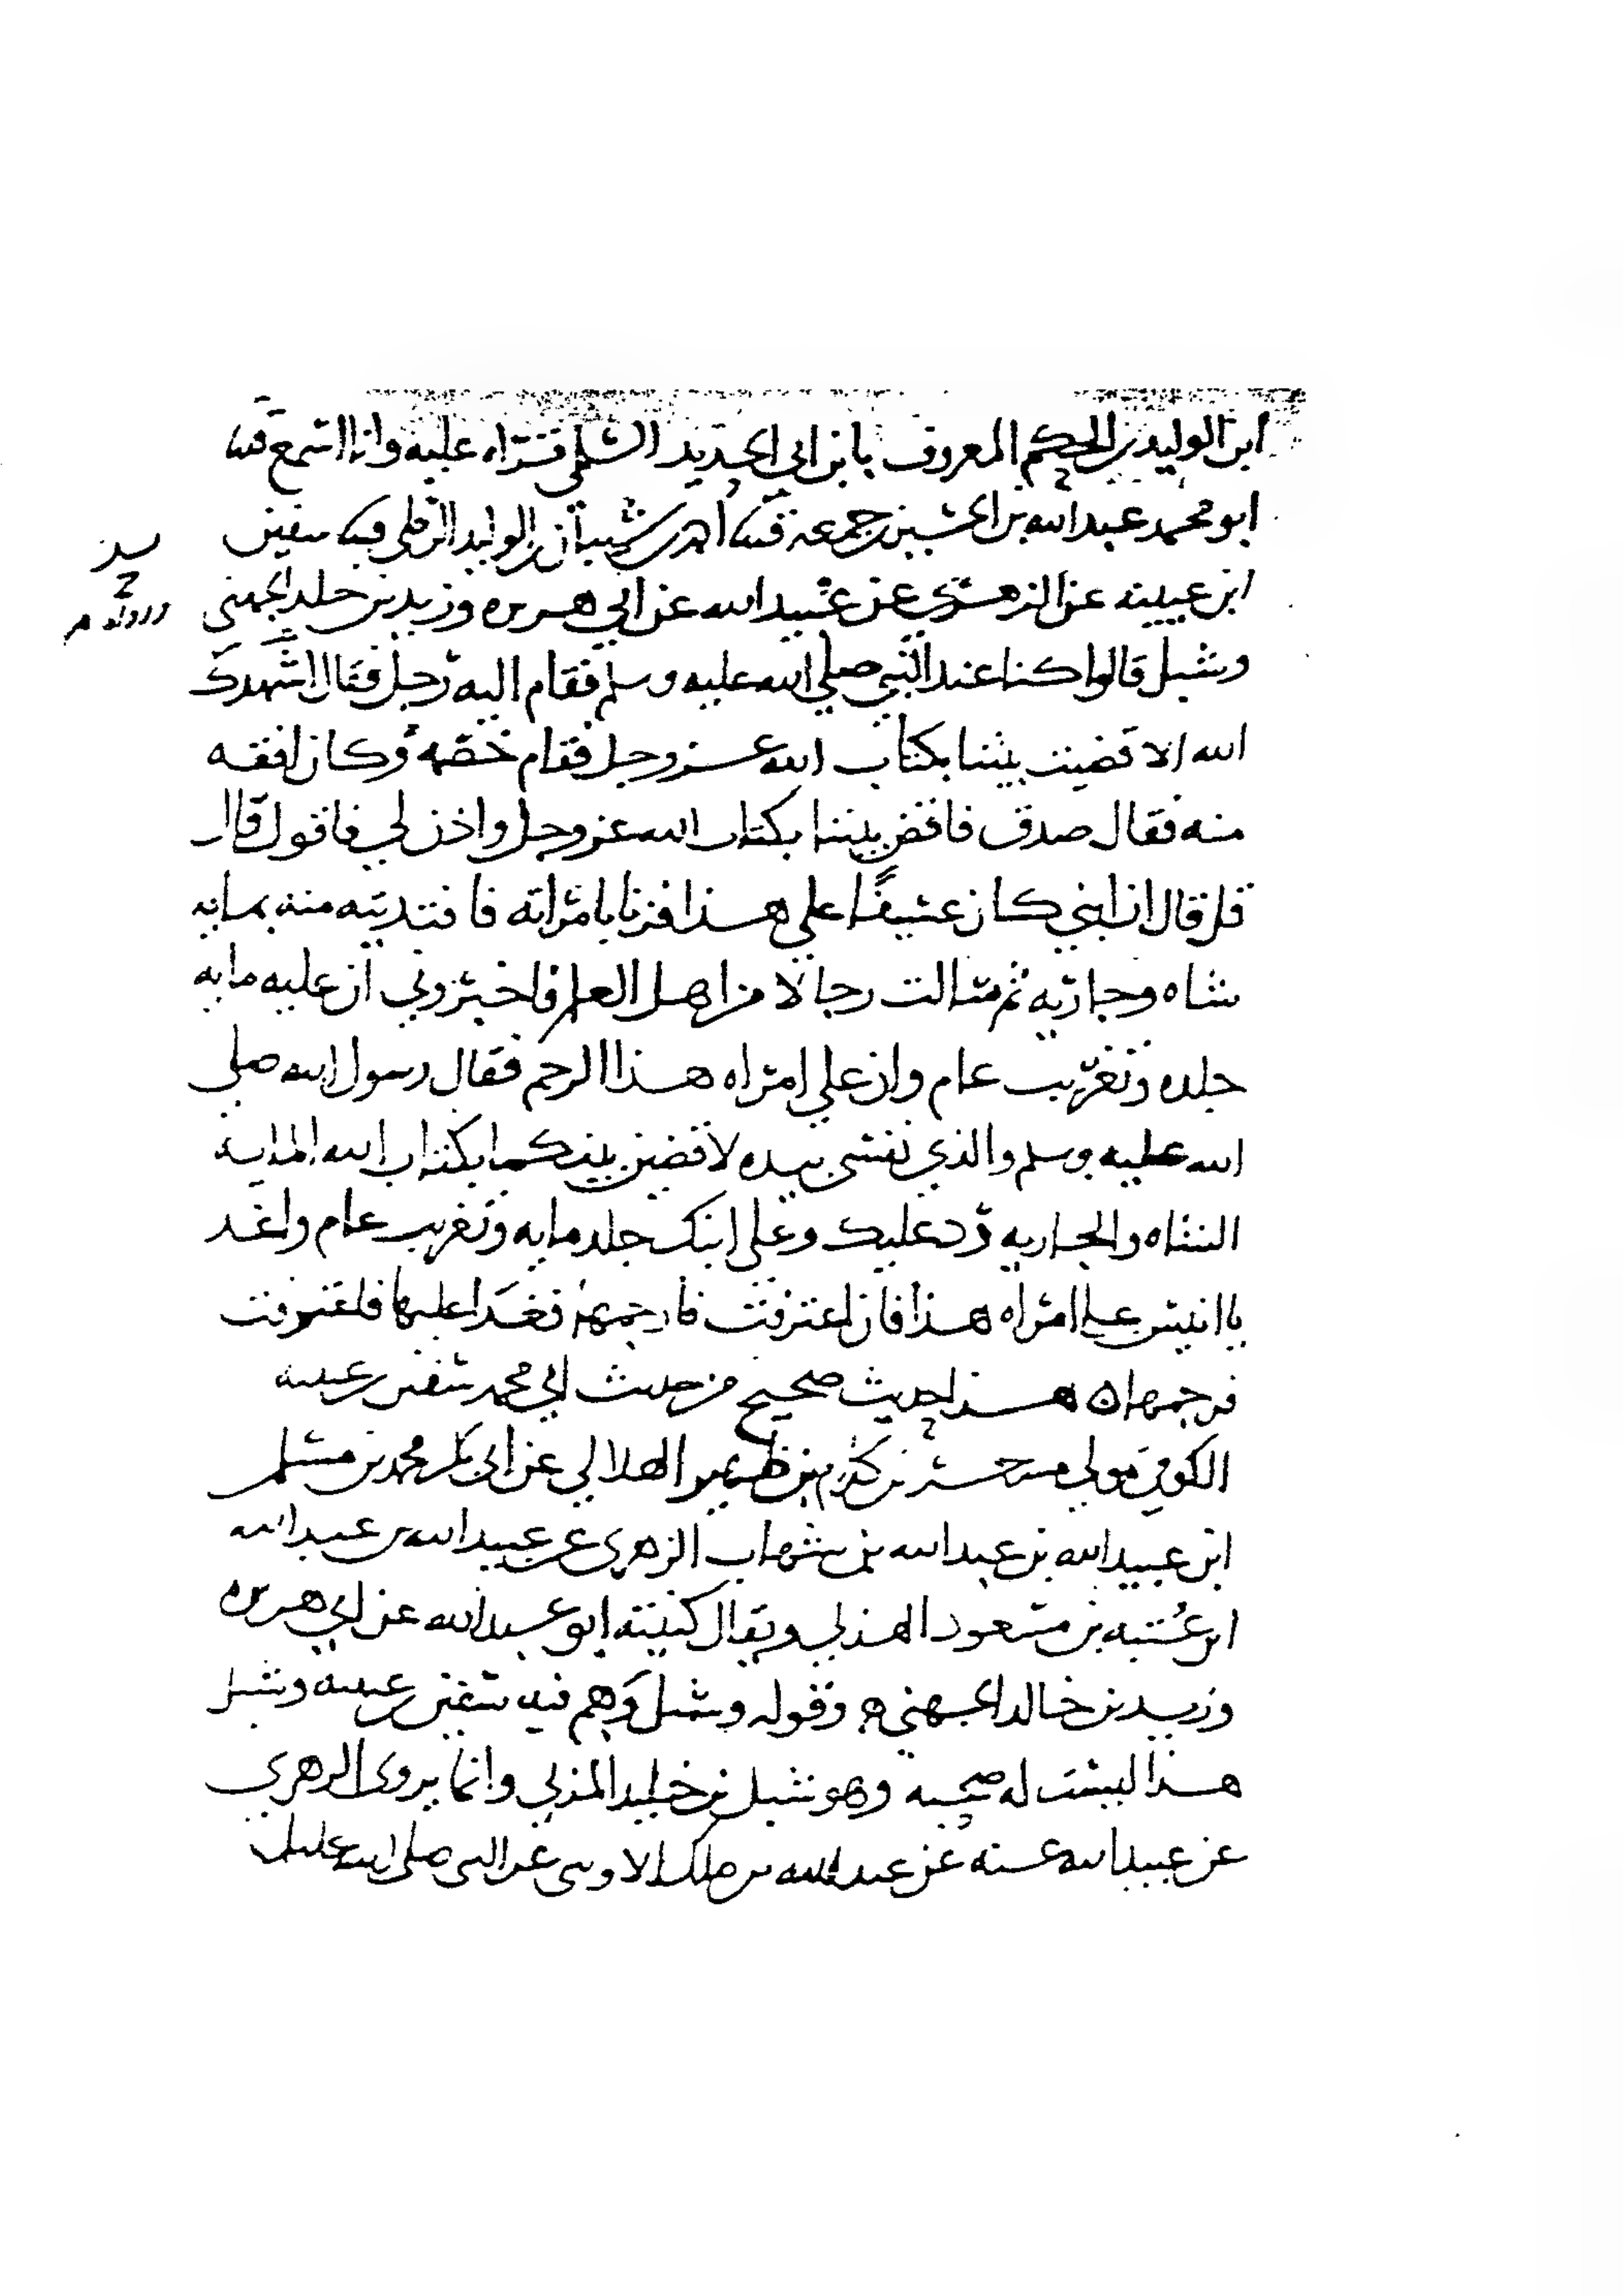 ابن الوليد بن الحكم المعروف بابن ابي الحديد السلمي قراه عليه وانا اسمع قثنا
ابو محمد عبد الله بن الحسين بن جمعه قثنا احمد بن شيبان بن الوليد الرملي قثنا سفين
ابن عيينه عن الزهري عن عبيد الله عن ابي هريره وزيد بن خلد الجهني
وشبل قالوا كنا عند النبي صلي الله عليه وسلم فقام اليه رجل فقال انشدك
الله الا قضيت بيننا بكتاب الله عز وجل فقام خصمه وكان افقه
منه فقال صدق فاقض بيننا بكتاب الله عز وجل واذن لي فاقول قال
قل قال ان ابني كان عسيفا علي هذا فزنا بامراته فافتديته منه بمايه
شاه وجاريه ثم سالت رجالا من اهل العلم فاخبروني ان عليه مايه
جلده وتغريب عام وان علي امراه هذا الرجم فقال رسول الله صلي
الله عليه وسلم والذي نفسي بيده لاقضين بينكما بكتاب الله المايه
الشاه والجاريه رد عليك وعلي ابنك جلد مايه وتغريب عام واغد
يا انيس علي امراه هذا فان اعترفت فارجمها فغدا عليها فاعترفت
فرجمها ه هذا حديث صحيح من حديث ابي محمد سفين بن عيينه
الكوفي مولي مسعر بن كدام بن ظهير الهلالي عن ابي بكر محمد بن مسلم
ابن عبيد الله بن عبد الله بن شهاب الزهري عن عبيد الله بن عبد الله
ابن عُتبه بن مسعود الهذلي ويقال كنيته ابو عبد الله عن ابي هريره
وزيد بن خالد الجهني ه وقوله وشبل وَهم فيه سفين بن عيينه وشبل
هذا ليست له صحبه وهو شبل بن خليد المزني وانما يروي الزهري
عن عبيد الله عنه عن عبد الله بن ملك الاوسي عن النبي صلي الله عليه